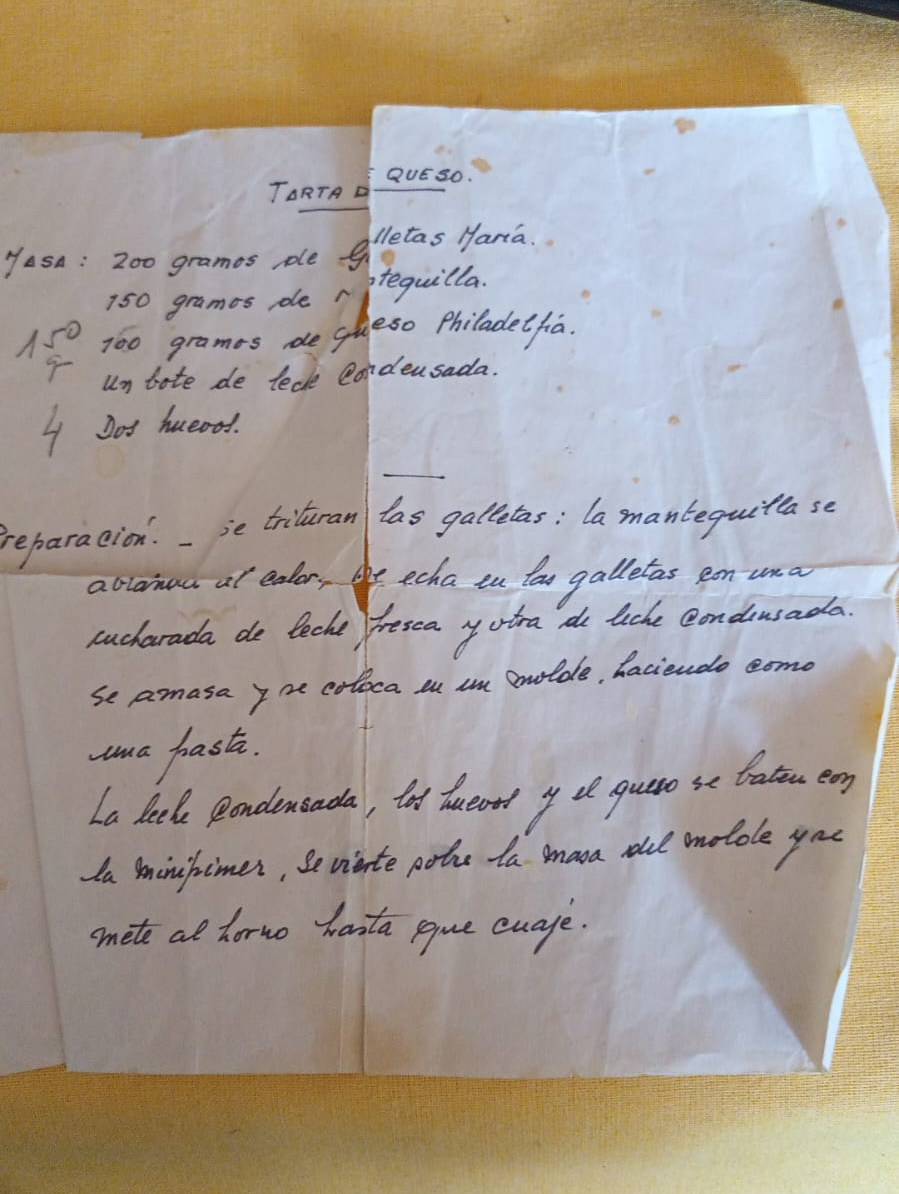 TARTA DE QUESO.
MASA: 200 gramos de Galletas María.
150 gramos de mantequilla.
150 gr 100 gramos de queso Philadelfia.
Un bote de leche Condensada.
4 Dos huevos.
Preparación. _ Se trituran las galletas: la mantequilla se
ablanda al calor, se echa en las galletas con una
cucharada de leche fresca y otra de leche Condensada.
Se amasa y se coloca en un molde, haciendo como
una pasta.
La leche Condensada, los huevos y el queso se baten con
la minipimer, Se vierte sobre la masa del molde y se
mete al horno hasta que cuaje.